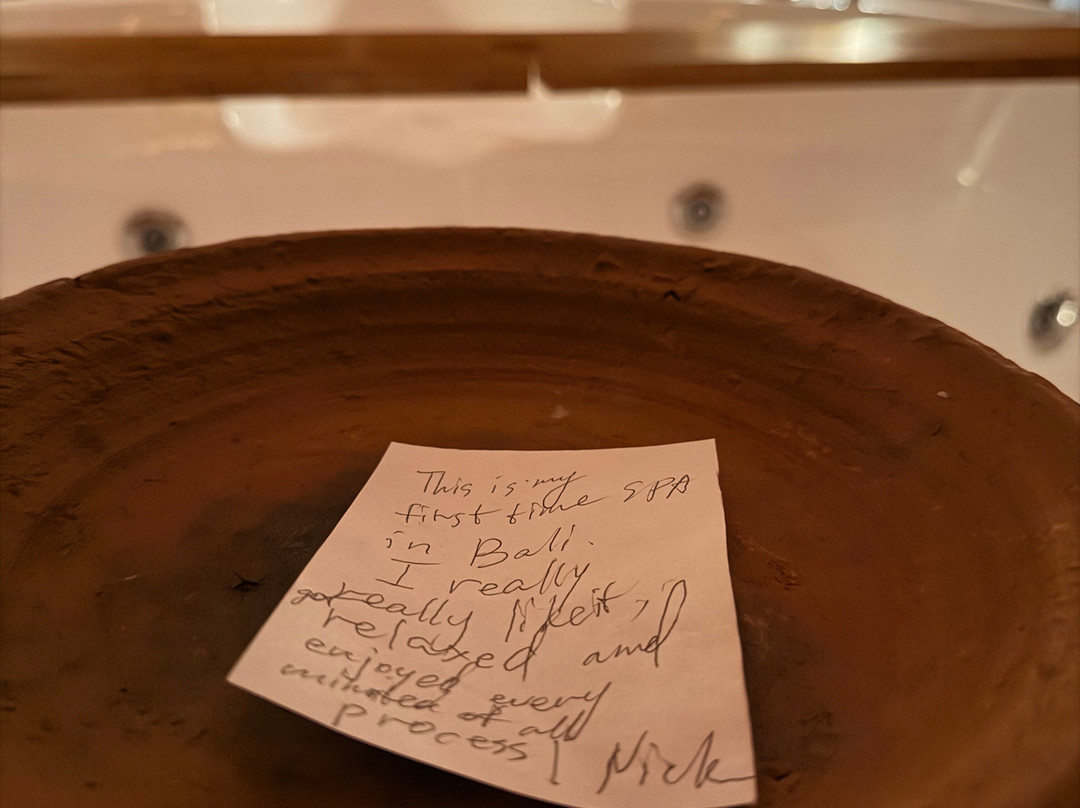 This is my
first time SPA
in Bali.
I really
really like it, I
got relaxed and
enjoyed every
minuted of all
process! Nick